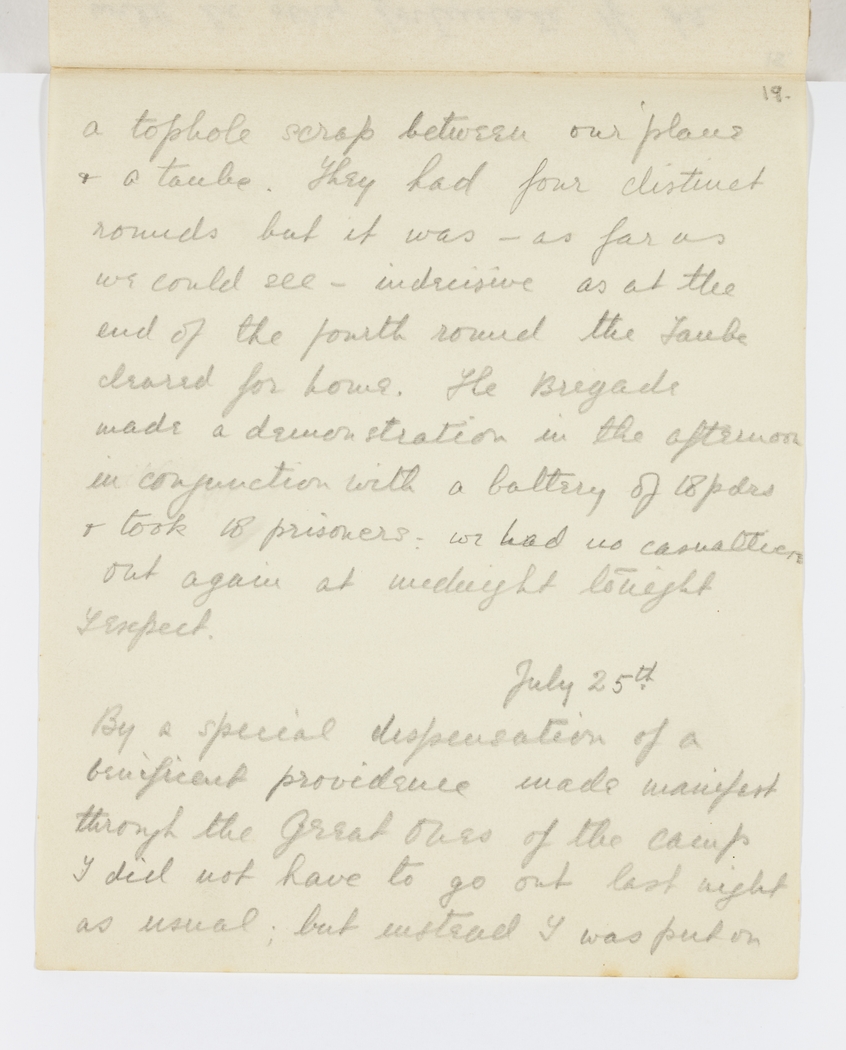 19.
a tophole scrap between our plane
& a taube. They had four distinct
rounds but it was – as far as
we could see – indecisive as at the
end of the fourth round the Taube
cleared for home. The Brigade
made a demonstration in the afternoon
in conjunction with a battery of 18pdrs
& took 18 prisoners: we had no casualties
out again at midnight tonight
I expect.
July 25th
By a special dispensation of a
benificent providence made manifest
through the Great Ones of the camp
I did not have to go out last night
as usual; but instead I was put on